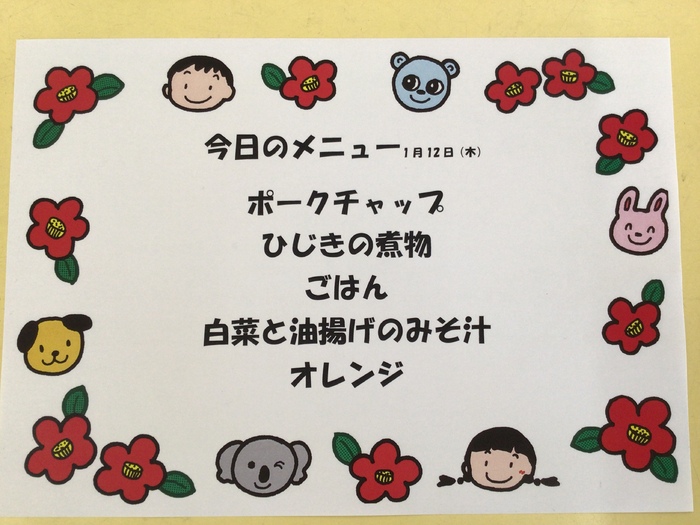 今日のメニュー1月12日(木)
ポークチャップ
ひじきの煮物
ごはん
白菜と油揚げのみそ汁
オレンジ